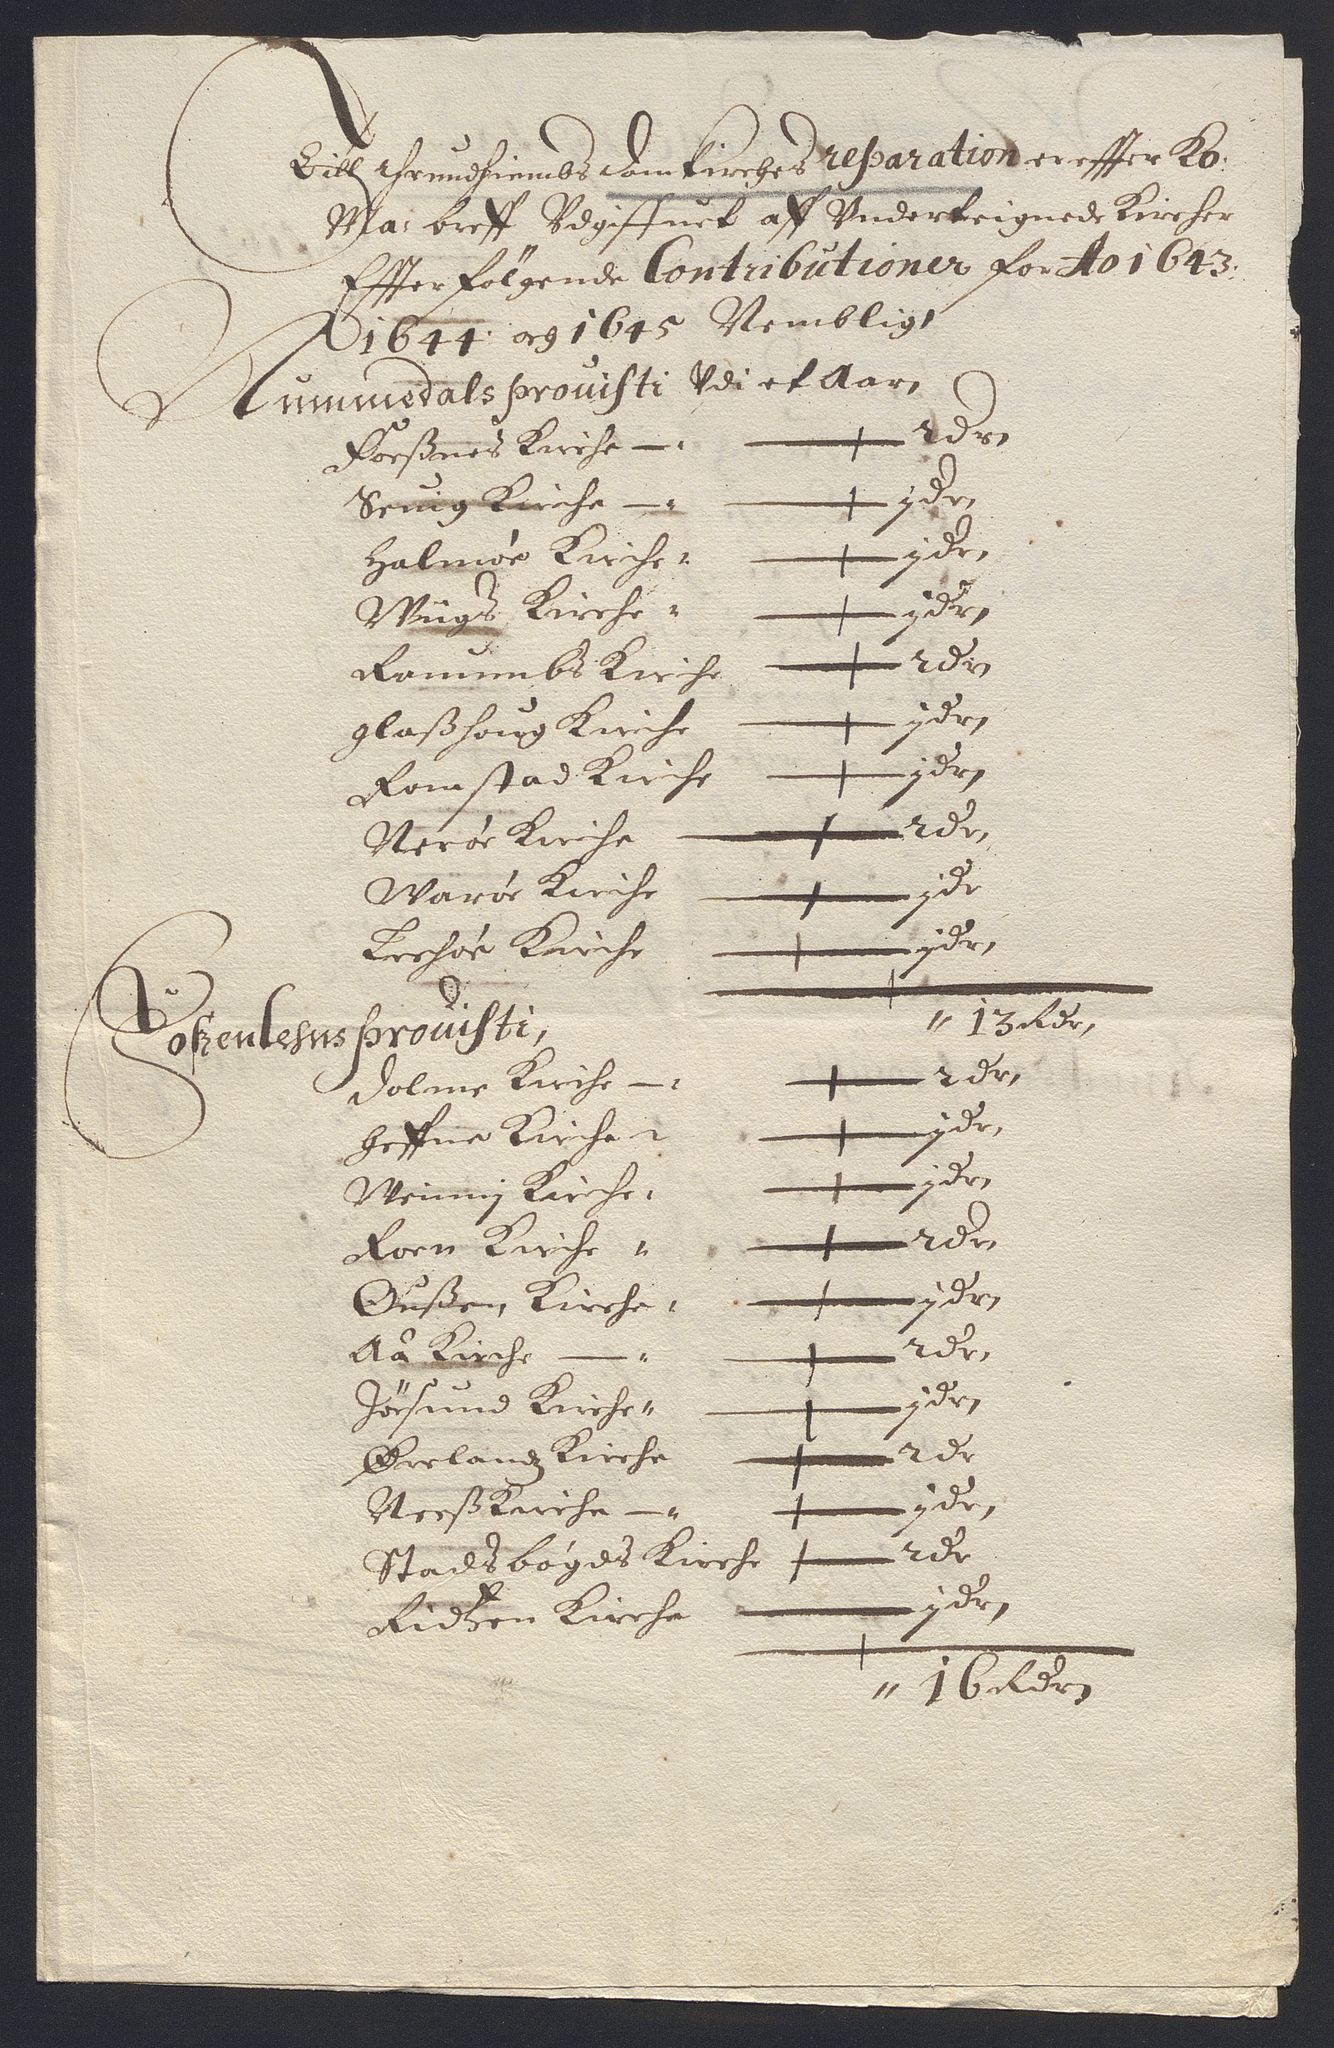 Till thrundhiembs domkirches reparation er effter Ko:
Ma: breff Udgiffuet aff Underteignede Kircher
Effterfölgende Contributioner for Ao 1643.
1644. og 1645 Nemblig,
Nummedals prouisti Udi et Aar,
Foeßnes Kirche — 2 dr,
Seuig Kirche — j dr,
Halmöe Kirche — j dr,
Wiigs Kirche — j dr,
Ranumbs Kirche — 2 dr,
glaßhoug Kirche — j dr,
Romstad Kirche — j dr,
Neröe Kirche — 2 dr,
Waröe Kirche — j dr
Lechöe Kirche — j dr,
" 13 Rdr,
Foßenlehns prouisti,
Dolme Kirche — 2 dr,
heffne Kirche — j dr,
Weinnij Kirche — j dr,
Roen Kirche — 2 dr,
Oußen Kirche — j dr,
Aa Kirche — 2 dr,
Jößund Kirche — j dr,
Örelandz Kirche — 2 dr
Neeß Kirche — j dr,
Stadsbögds Kirche — 2 dr
Ridßen Kirche — j dr,
" 16 Rdr,